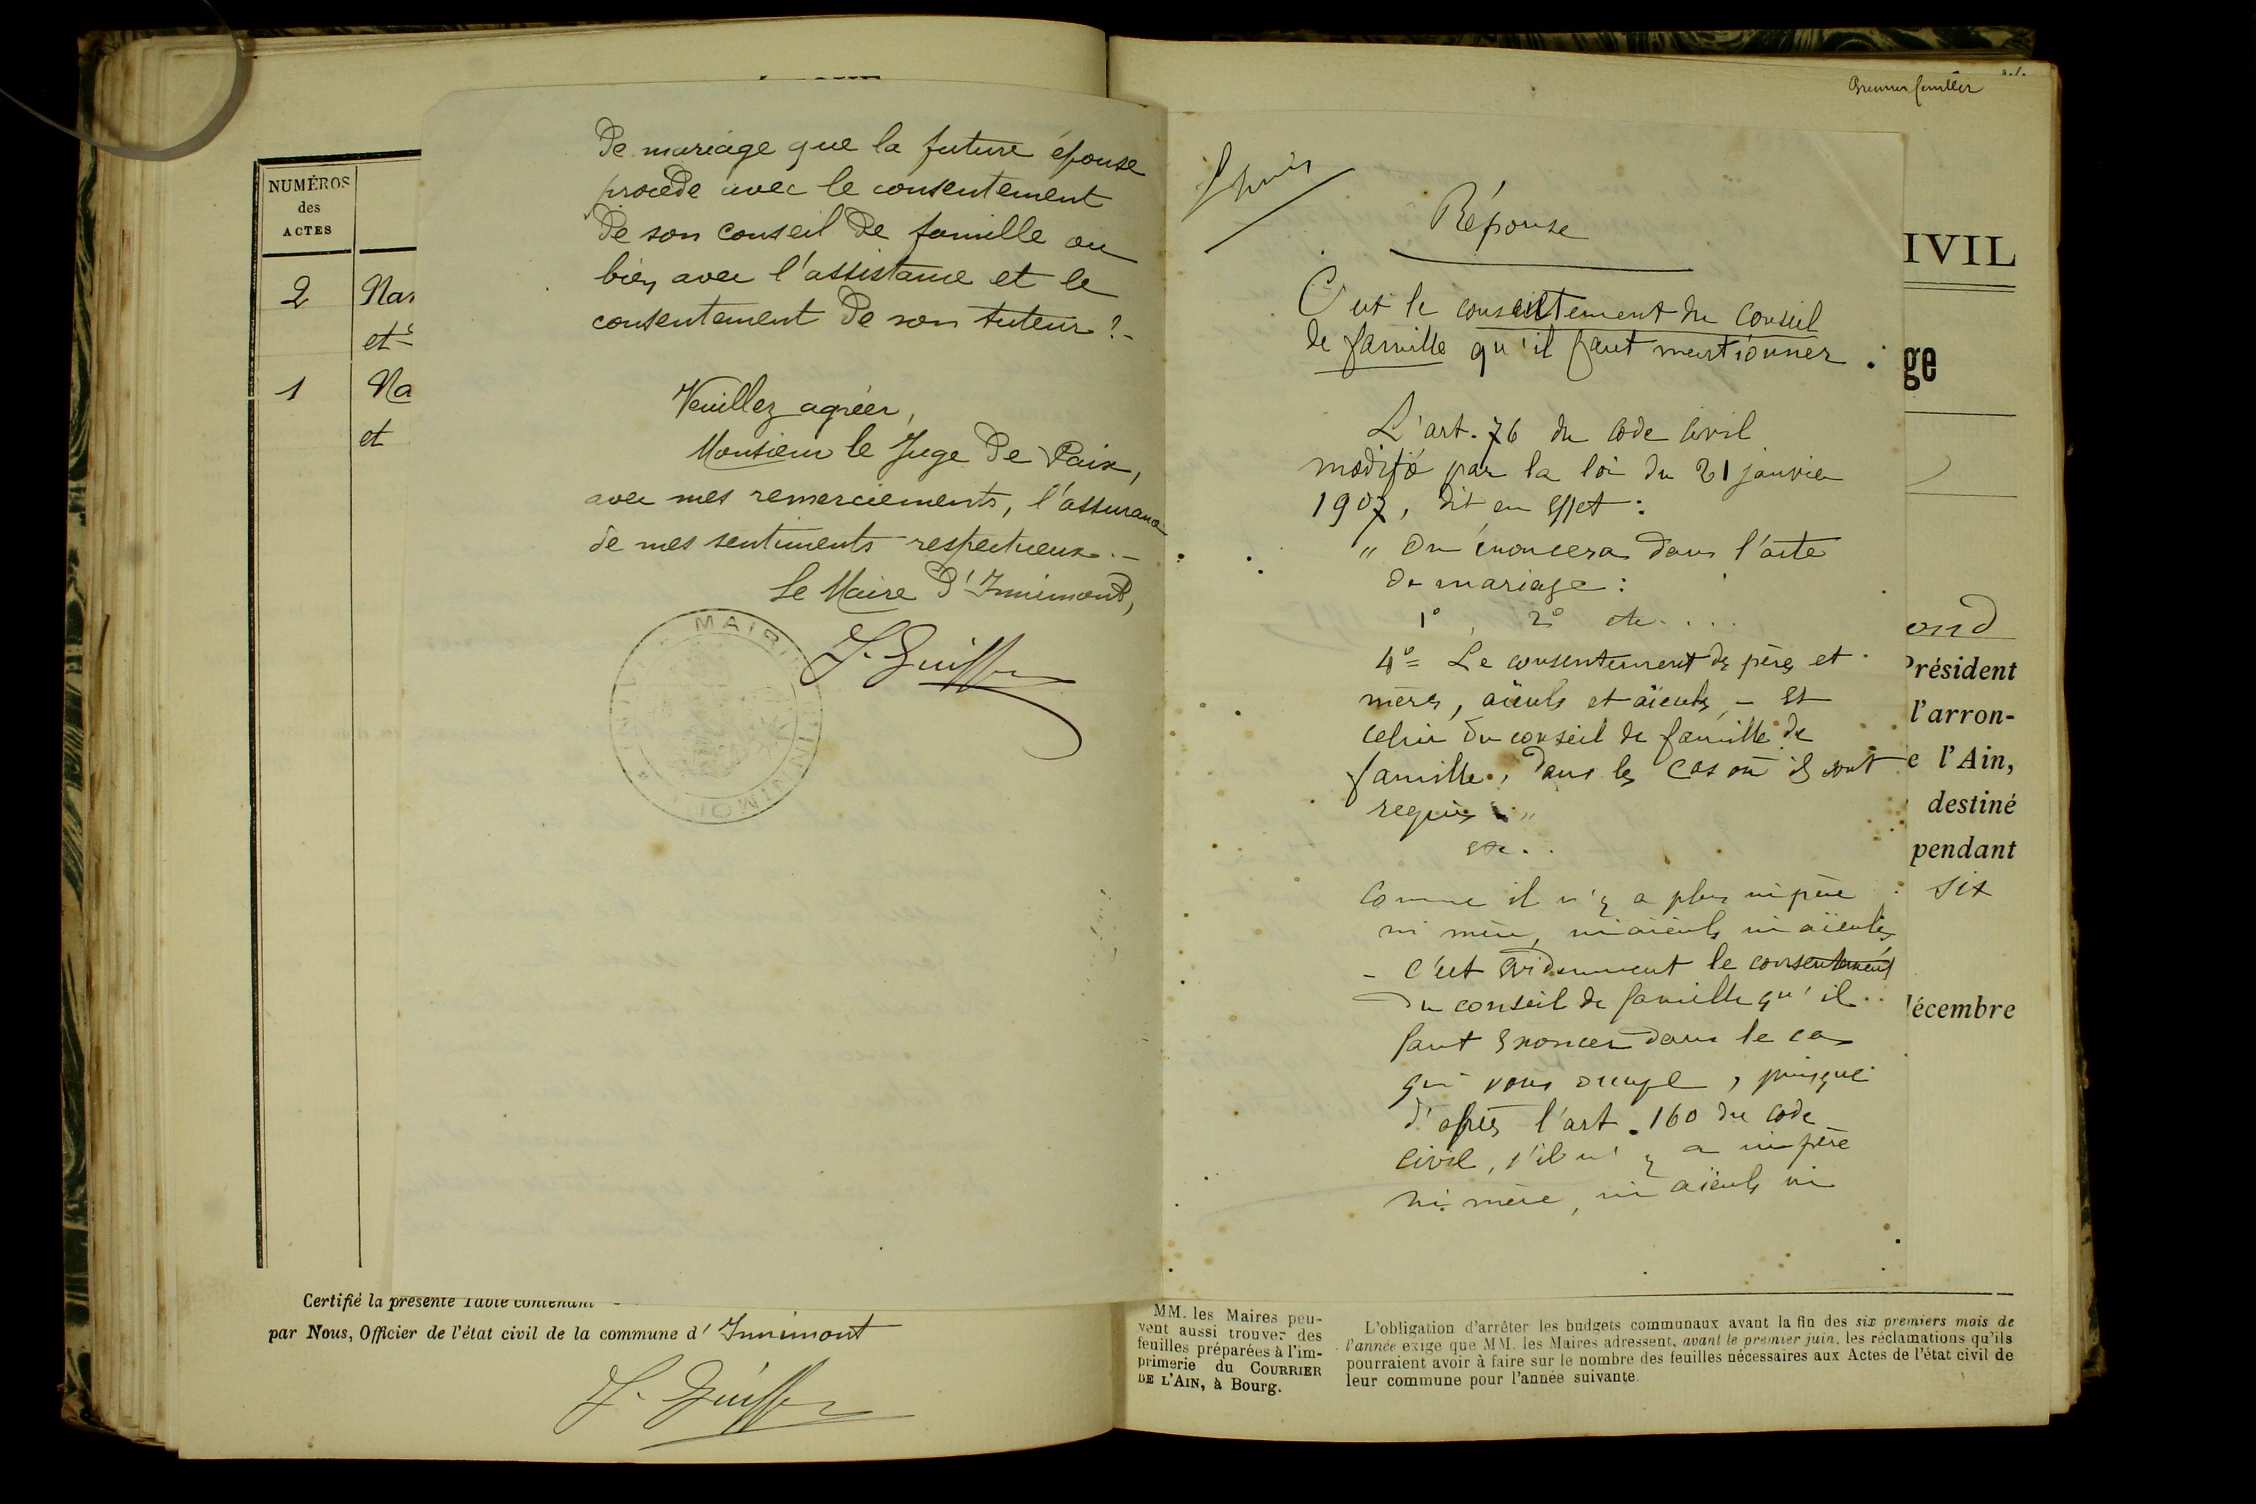 NUMÉROS
des
ACTES
2
Nar
et
1
Na
et
de mariage que la future épouse
procède avec le consentement
de son conseil de famille ou
bien avec l'assistance et le
consentement de son tuteur ?.-
Veuillez agréer,
Monsieur le Juge de Paix,
avec mes remerciements, l'assurance
de mes sentiments respectueux.-
Le Maire d'Innimont,
MAIRIE
INNIMONT
Certifié la présente Table contenant
par Nous, Officier de l'état civil de la commune d' Innimont
Premier feuillet
Réponse
C'est le consentement du conseil
de famille qu'il faut mentionner.
L'art. 76 du Code Civil
modifié par la loi du 21 janvier
1907, dit en effet :
" On énoncera dans l'acte
de mariage :
1°, 2° etc....
4° = Le consentement des pères et
mères, aïeuls et aïeules, - et
celui du conseil de famille de
famille, dans les cas où ils sont
requis "
etc..
Comme il n'y a plus ni père
ni mère, ni aïeuls ni aïeules
- c'est évidemment le consentement
du conseil de famille qu'il
faut énoncer dans le cas
qui vous occupe, puisque
d'après l'art. 160 du Code
civil, s'il n'y a ni père
ni mère, ni aïeuls ni
IVIL
ge
ond
Président
l'arron-
e l'Ain,
destiné
pendant
six
décembre
MM. les Maires peu-
vent aussi trouver des
feuilles préparées à l'im-
primerie du COURRIER
DE L'AIN, à Bourg.
L'obligation d'arrêter les budgets communaux avant la fin des six premiers mois de
l'année exige que MM. les Maires adressent, avant le premier juin, les réclamations qu'ils
pourraient avoir à faire sur le nombre des feuilles nécessaires aux Actes de l'état civil de
leur commune pour l'année suivante.